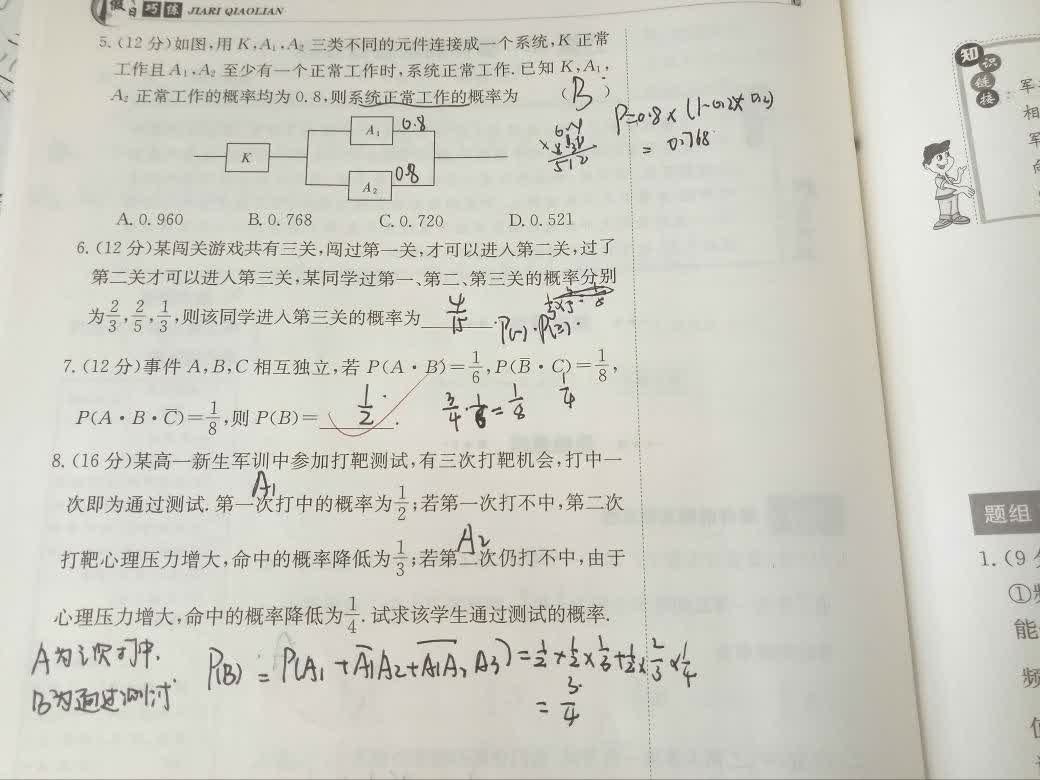 假日巧练 JIARI QIAOLIAN
5.(12分)如图,用K,A₁,A₂三类不同的元件连接成一个系统,K正常
工作且A₁,A₂至少有一个正常工作时,系统正常工作.已知K,A₁,
A₂正常工作的概率均为0.8,则系统正常工作的概率为 ( B )
P=0.8×(1-0.2×0.2)
=0.768
A₁ 0.8
K
A₂ 0.8
512
A.0.960 B.0.768 C.0.720 D.0.521
6.(12分)某闯关游戏共有三关,闯过第一关,才可以进入第二关,过了
第二关才可以进入第三关,某同学过第一、第二、第三关的概率分别
为2/3,2/5,1/3,则该同学进入第三关的概率为 4/15 .
7.(12分)事件A,B,C相互独立,若P(A·B)=1/6,P(B̄·C)=1/8,
P(A·B·C̄)=1/8,则P(B)= 1/2 .
3/4·1/6=1/8 1/4
8.(16分)某高一新生军训中参加打靶测试,有三次打靶机会,打中一
A₁
次即为通过测试.第一次打中的概率为1/2;若第一次打不中,第二次
A₂
打靶心理压力增大,命中的概率降低为1/3;若第二次仍打不中,由于
心理压力增大,命中的概率降低为1/4.试求该学生通过测试的概率.
A为i次打中.
B为通过测试
P(B)=P(A₁+A̅₁A₂+A̅₁A̅₂A₃)=1/2+1/2×1/3+1/2×2/3×1/4
=3/4
知识链接
军
相
军
向
题组
1.(9分
①
能
频